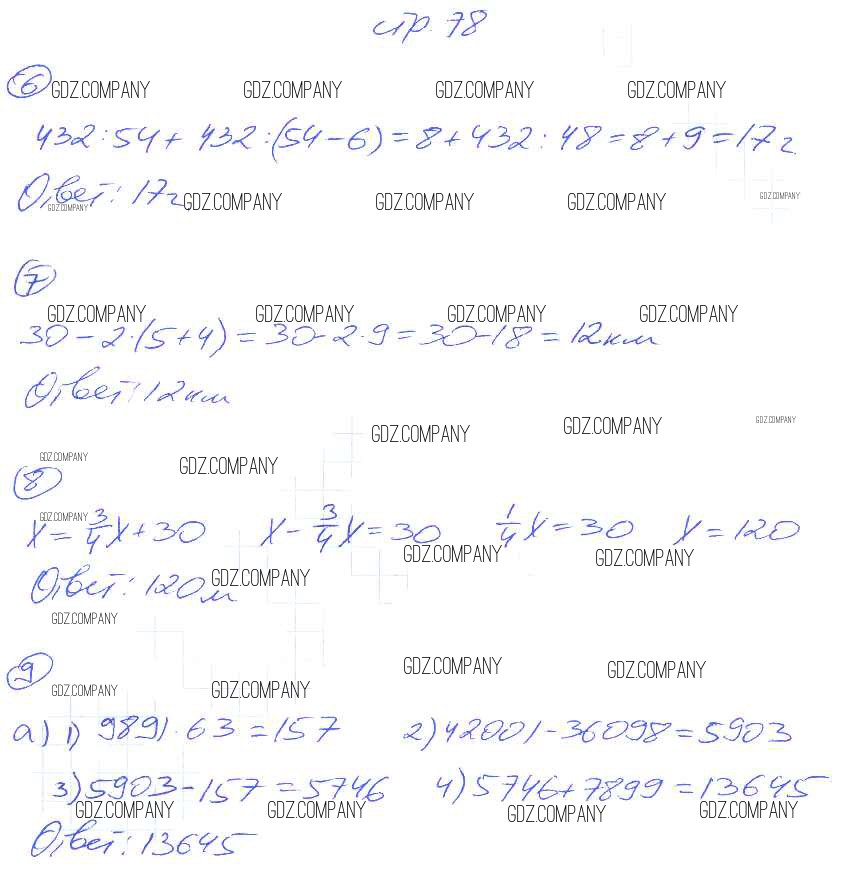 стр. 78
6 GDZ.COMPANY GDZ.COMPANY GDZ.COMPANY GDZ.COMPANY
432:54 + 432:(54-6) = 8 + 432:48 = 8 + 9 = 17 г.
Ответ: 17 г.
GDZ.COMPANY GDZ.COMPANY GDZ.COMPANY GDZ.COMPANY GDZ.COMPANY
7
GDZ.COMPANY GDZ.COMPANY GDZ.COMPANY GDZ.COMPANY
30 - 2·(5+4) = 30 - 2·9 = 30 - 18 = 12 км
Ответ: 12 км
GDZ.COMPANY GDZ.COMPANY GDZ.COMPANY
GDZ.COMPANY GDZ.COMPANY
8
GDZ.COMPANY
x = 3/4 x + 30 x - 3/4 x = 30 1/4 x = 30 x = 120
GDZ.COMPANY GDZ.COMPANY
Ответ: 120 м GDZ.COMPANY
GDZ.COMPANY
9
GDZ.COMPANY GDZ.COMPANY
GDZ.COMPANY GDZ.COMPANY
а) 1) 9891:63 = 157 2) 42001 - 36098 = 5903
3) 5903 - 157 = 5746 4) 5746 + 7899 = 13645
GDZ.COMPANY GDZ.COMPANY GDZ.COMPANY GDZ.COMPANY
Ответ: 13645